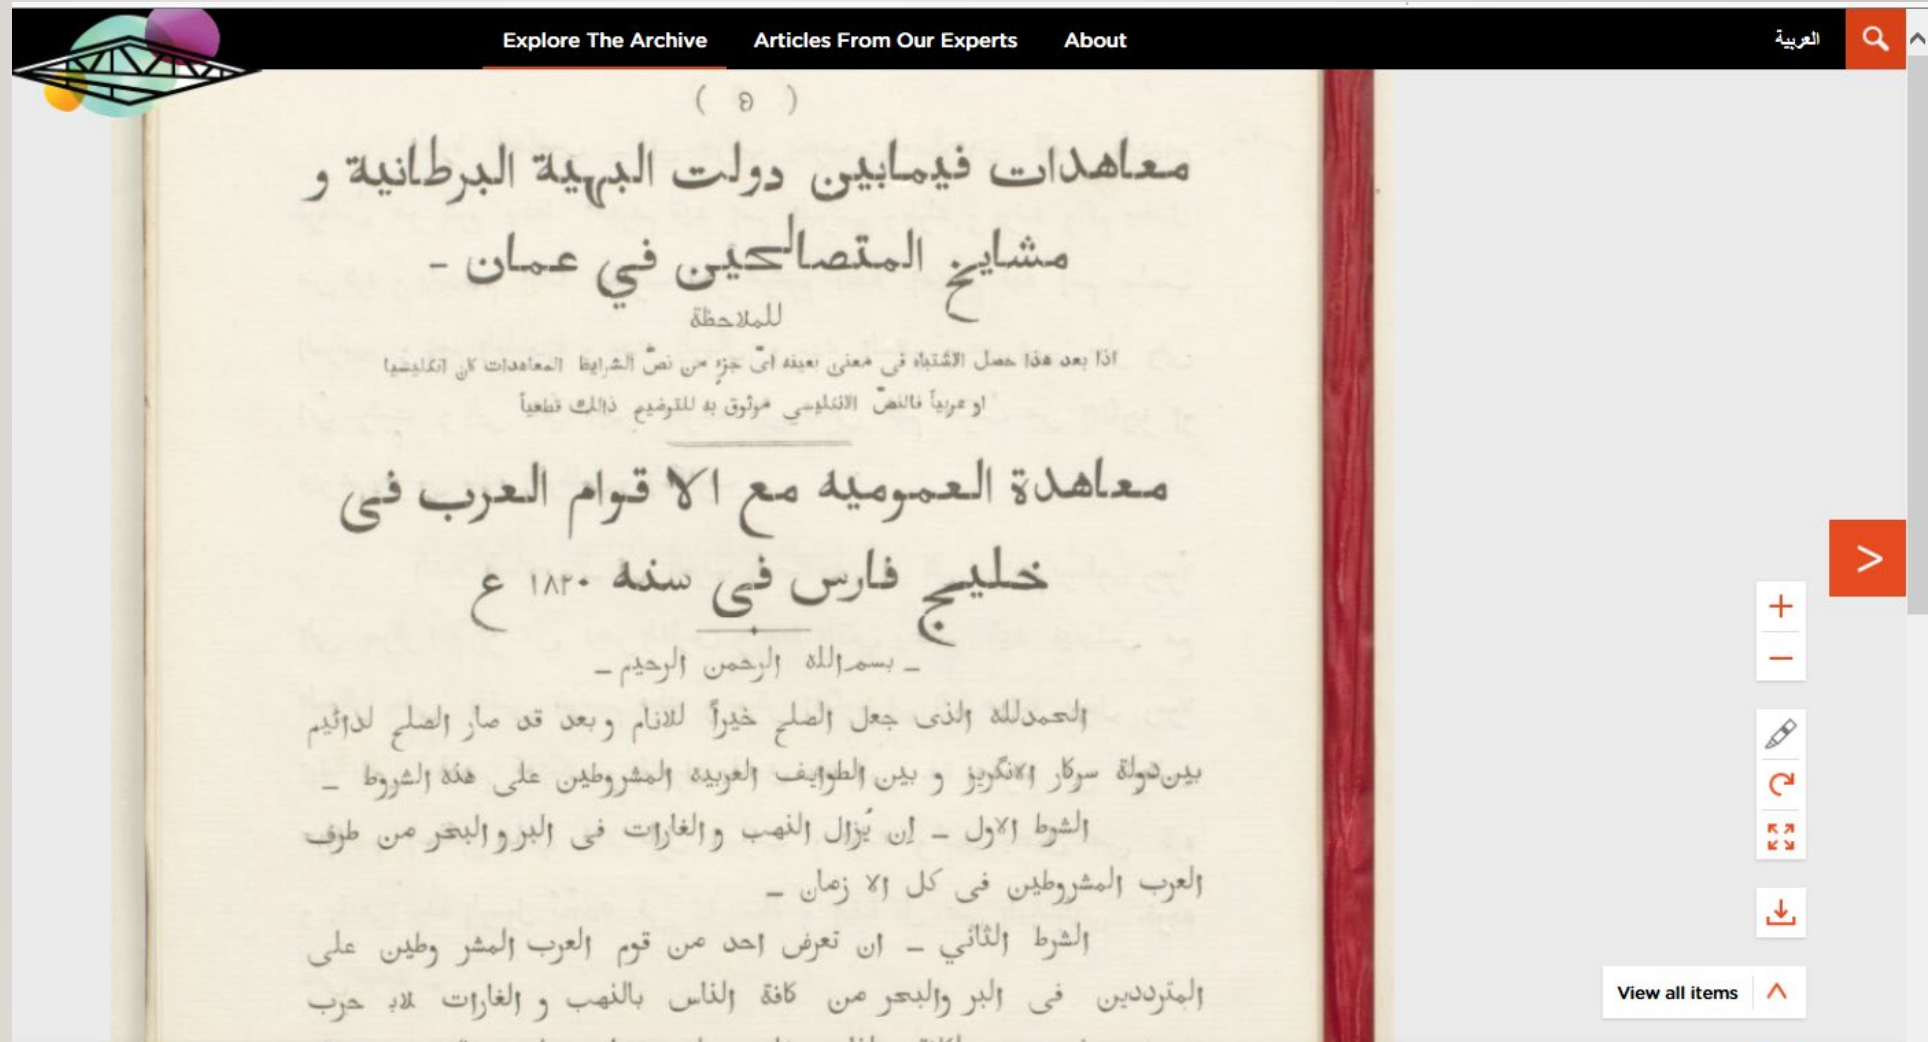 Explore The Archive
Articles From Our Experts
About
العربية
( ۵ )
معاهدات فيمابين دولت البهية البرطانية و
مشايخ المتصالحين في عمان -
للملاحظة
اذا بعد هذا حصل الاشتباه في معنى بعينه اىّ جزء من نصّ الشرايط المعاهدات كان انكليشيا
او عربياً فالنصّ الانكليسي موثوق به للتوضيح ذالك قطعياً
معاهدة العموميه مع الا قوام العرب فى
خليج فارس فى سنه ١٨٢٠ ع
ـ بسم الله الرحمن الرحيم ـ
الحمدلله الذى جعل الصلح خيراً للانام و بعد قد صار الصلح لدائيم
بين دولة سركار الانگريز و بين الطوايف العربيه المشروطين على هذه الشروط ـ
الشرط الاول ـ إن يُزال النهب و الغارات فى البر و البحر من طرف
العرب المشروطين فى كل الا زمان ـ
الشرط الثاني ـ ان تعرض احد من قوم العرب المشر وطين على
المترددين فى البر والبحر من كافة الناس بالنهب و الغارات بلا حرب
View all items